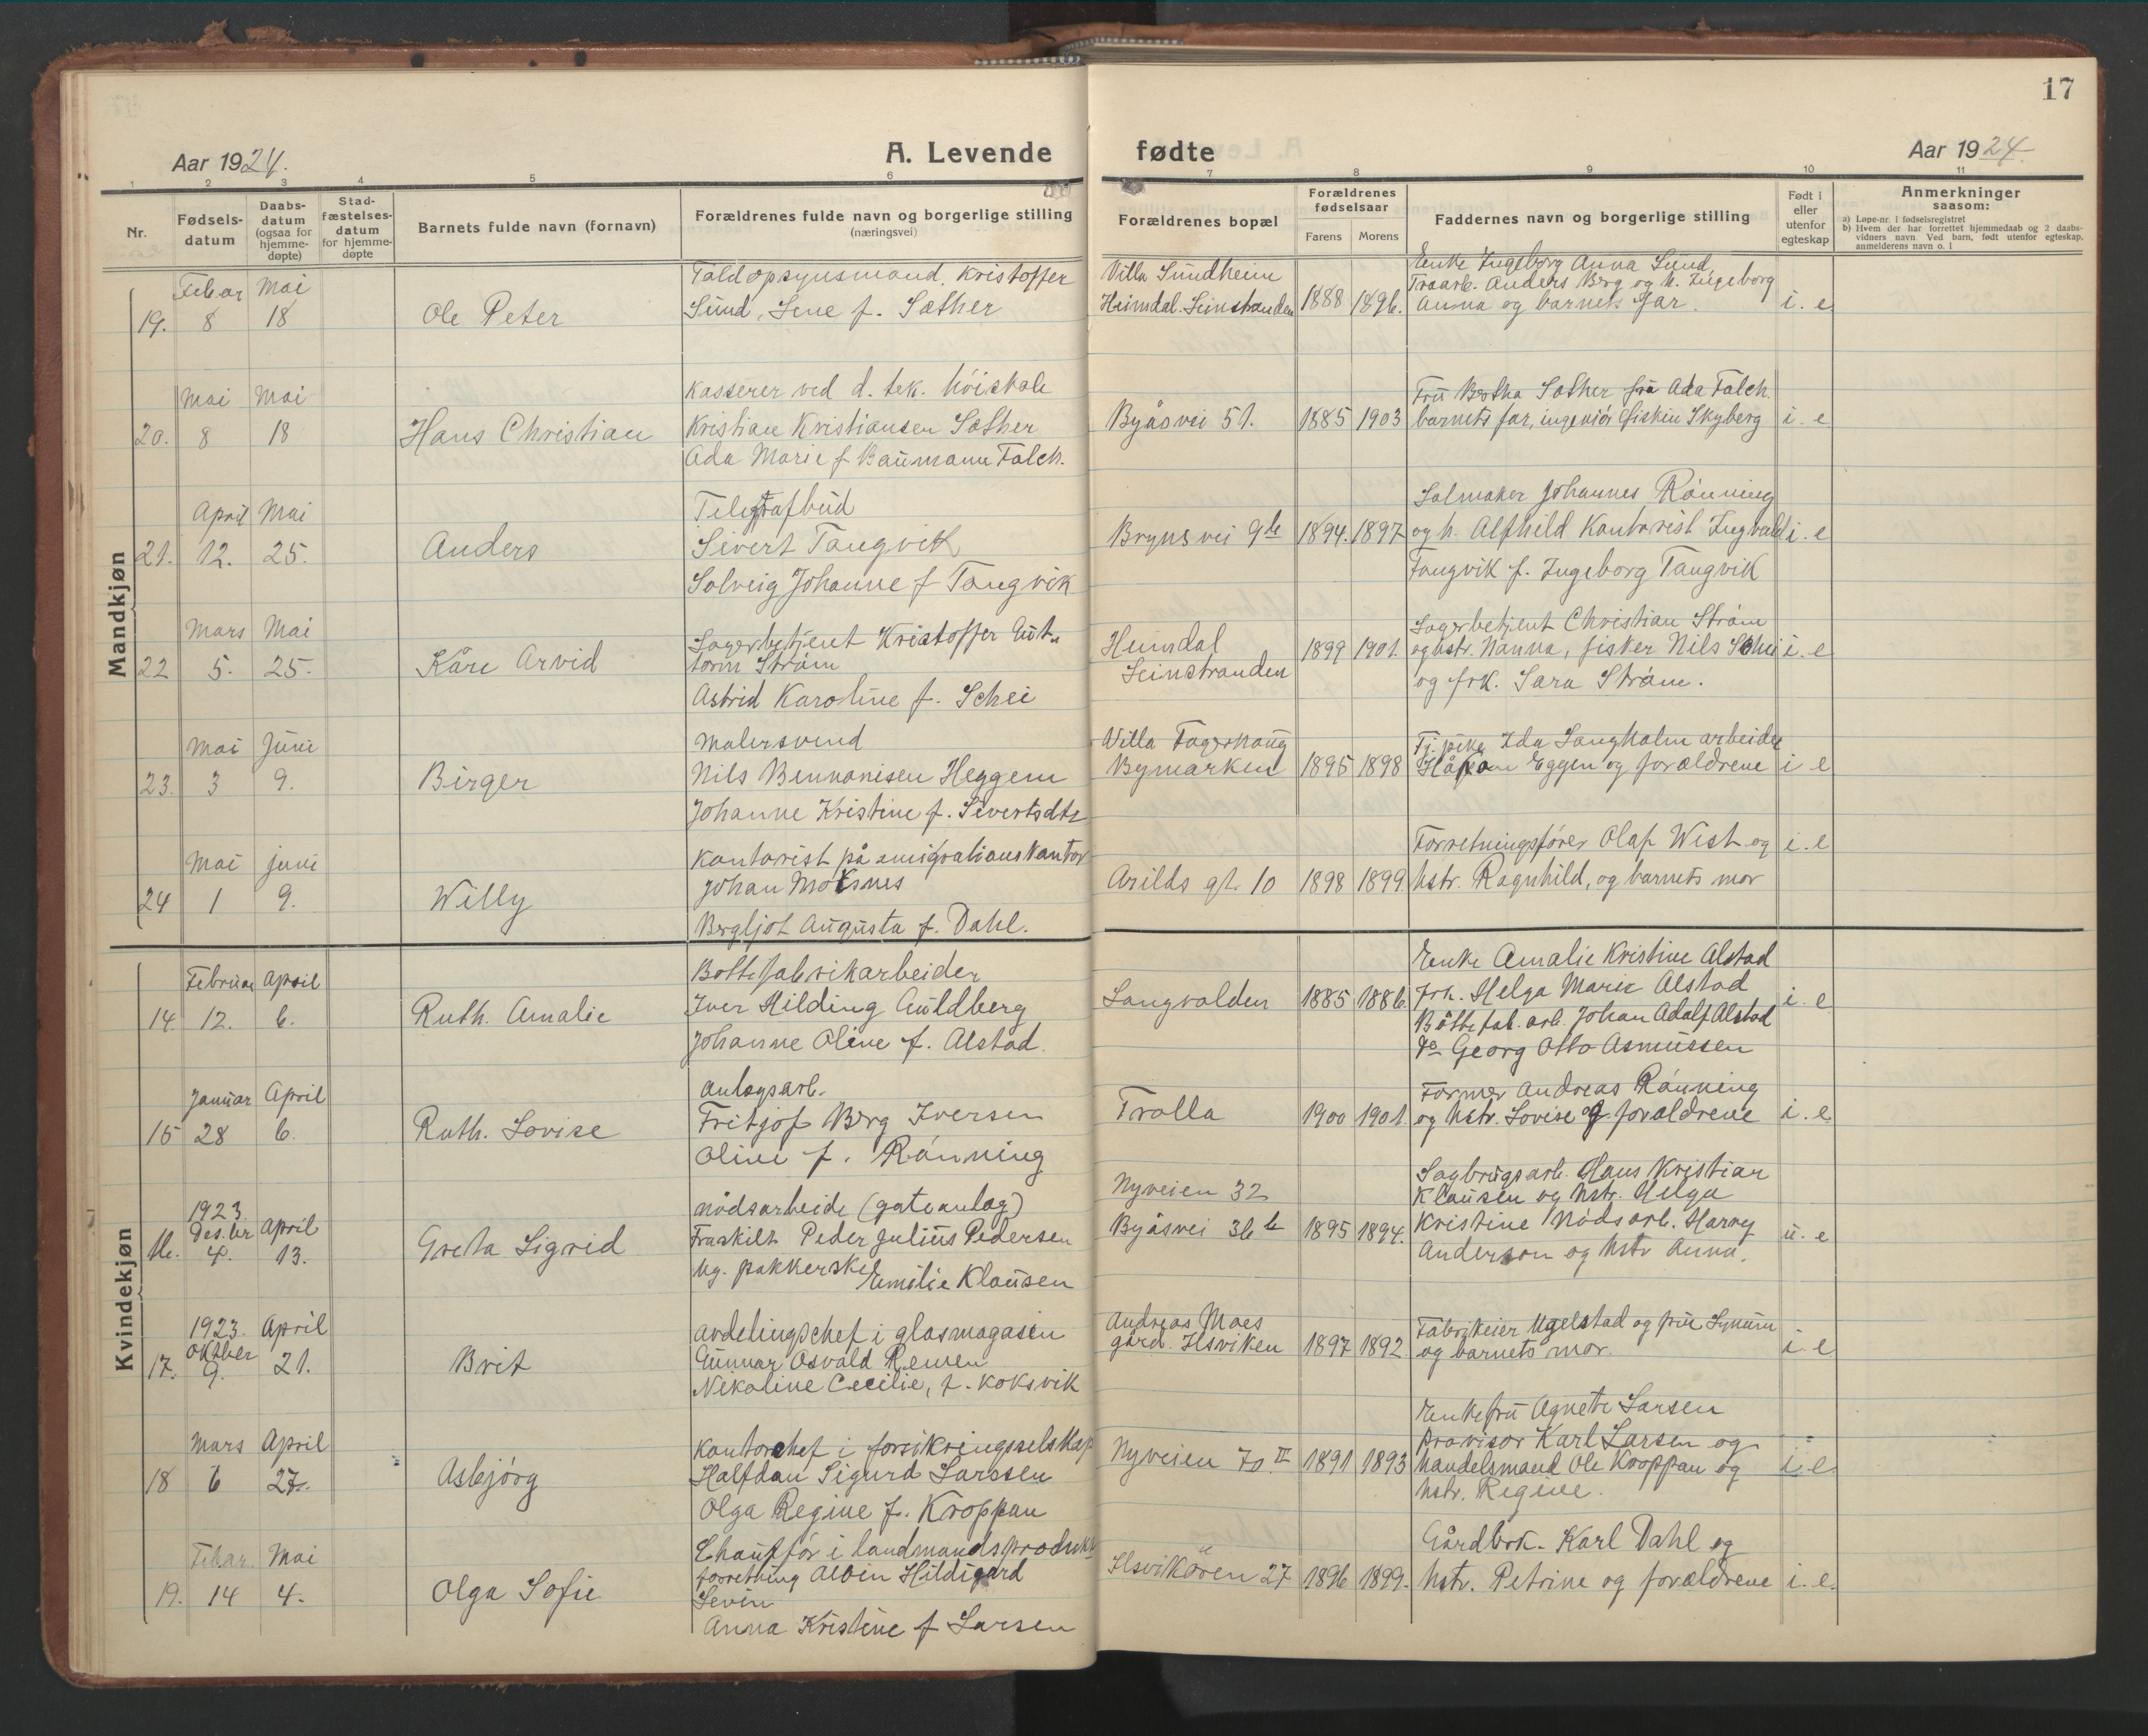 17
Aar 1924.
A. Levende
fødte
Aar 1924.
1 2 3 4 5 6 7 8 9 10 11
Nr.
Fødsels-
datum
Daabs-
datum
(ogsaa for
hjemme-
døpte)
Stad-
fæstelses-
datum
for hjemme-
døpte
Barnets fulde navn (fornavn)
Forældrenes fulde navn og borgerlige stilling
(næringsvei)
Forældrenes bopæl
Forældrenes
fødselsaar
Farens Morens
Faddernes navn og borgerlige stilling
Født i
eller
utenfor
egteskap
Anmerkninger
saasom:
a) Løpe-nr. i fødselsregistret
b) Hvem der har forrettet hjemmedaab og 2 daabs-
vidners navn. Ved barn, født utenfor egteskap,
anmelderens navn o. l
Mandkjøn
19. Febar 8 Mai 18
Ole Peter
Toldopsynsmand. Kristoffer
Sund, Lene f. Sæther
Villa Sundheim
Heimdal. Leinstranden
1888 1896.
Enke Ingeborg Anna Sund,
Traarb. Anders Berg og h. Ingeborg
Anna og barnets far.
i. e
20. Mai 8 Mai 18
Hans Christian
Kasserer ved d. tek. höiskole
Kristian Kristiansen Sæther
Ada Marie f Baumann Falch.
Byåsvei 51.
1885 1903
Fru Bertha Sæther fru Ada Falch.
barnets far, ingeniör Skyberg
i. e
21. April 12. Mai 25.
Anders
Telegrafbud
Sivert Tangvik
Solveig Johanne f Tangvik
Brynsvei 9b
1894. 1897
Salmaker Johannes Rönning
og h. Alfhild Kontorist Ingvald
Tangvik f. Ingeborg Tangvik
i. e
22 Mars 5. Mai 25.
Kåre Arvid
Lagerbetjent Kristoffer Gut-
torm Ström
Astrid Karoline f. Schei
Heimdal
Leinstranden
1899 1901.
Lagerbetjent Christian Ström
og hstr. Nanna, fisker Nils Schei
og frk. Sara Ström.
i. e
23. Mai 3 Juni 9.
Birger
Malersvend
Nils Bennonisen Heggem
Johanne Kristine f. Sivertsdtr
Villa Fagerhaug
Bymarken
1895 1898
Tj. pike Ida Langholm arbeider
Håkon Eggen og forældrene
i e
24 Mai 1 juni 9.
Willy
Kontorist på emigrationskontor
Johan Moksnes
Bergljot Augusta f. Dahl.
Arilds gt. 10
1898 1899.
Forretningsfører Olaf Wist og
hstr. Ragnhild, og barnets mor
i. e
Kvindekjøn
14. Februar 12. April 6.
Ruth. Amalie
Bottefabrikarbeider
Iver Hilding Guldberg
Johanne Oline f. Alstad.
Langvalden
1885 1886.
Enke Amalie Kristine Alstad
Frk. Helga Marie Alstad
Böttefab. arb. Johan Adolf Alstad
do Georg Otto Asmussen
i. e
15 Januar 28 April 6.
Ruth. Lovise
Anlegsarb.
Fritjof Berg Iversen
Oline f. Rönning
Trolla
1900 1901.
Former Andreas Rönning
og hstr. Lovise og forældrene
i. e.
16. 1923. Des.br 4. April 13.
Greta Sigrid
nödsarbeide (gateanlag)
Fraskilt Peder Julius Pedersen
Ug. pakkerske Emilie Klausen
Nyveien 32
Byåsvei 36 b
1895 1894.
Sagbrugsarb. Hans Kristian
Klausen og hstr. Helga
Kristine Nödsarb. Harry
Anderson og hstr Anna.
u. e
17. 1923. Oktber 9. April 21.
Brit
avdelingschef i glasmagasin
Gunnar Osvald Remen
Nikoline Cecilie, f. Koksvik
Andreas Moes
gård. Ilsviken
1897 1892
Fabrikeier Ugelstad og fru
og barnets mor.
i. e
18 Mars 6 April 27.
Asbjörg
Kontorchef i forsikringsselskap
Halfdan Sigurd Larssen
Olga Regine f. Kroppan
Nyveien 70. II
1891 1893
Enkefru Agnete Larsen
provisor Karl Larsen og
handelsmand Ole Kroppan og
hstr. Regine.
i. e.
19. Febar. 14 Mai 4.
Olga Sofie
Chaufför i landmandsprodukt
forretning Albin Hildigard
Levin
Anna Kristine f Larsen
Ilsvikören 27
1896 1899.
Gårdbrk. Karl Dahl og
hstr. Petrine og forældrene
i. e.